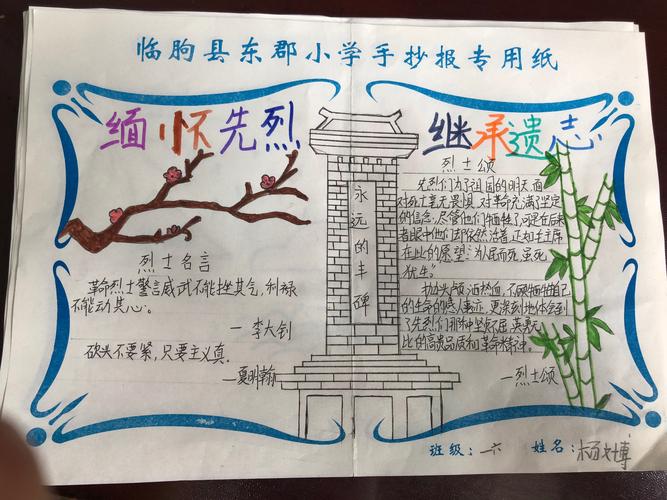 临朐县东郡小学手抄报专用纸
缅怀先烈
继承遗志
烈士名言
革命烈士誓言威武不能挫其气,利禄
不能动其心。
—李大钊
砍头不要紧,只要主义真。
—夏明翰
永远的丰碑
烈士颂
先烈们为了祖国的明天,面
对死亡毫无畏惧,对革命充满了坚定
的信念。尽管他们牺牲了,可是在后来
者眼中他们却依然活着,正如毛主席
在此的愿望:为人民而死,虽死
犹生。
抛头颅洒热血,不顾牺牲自己
的生命的感人事迹,更深刻地体会到
了先烈们那种坚贞不屈,英勇无
比的高贵品质和革命精神。
—烈士颂
班级:一六 姓名:杨